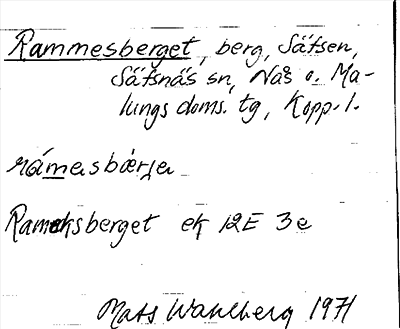 Rammesberget, berg, Säfsen,
Säfsnäs sn, Nås o. Ma-
lungs doms. tg, Kopp. l.
rámesbärja
Ramaksberget ek 12E 3e
Mats Wahlberg 1971